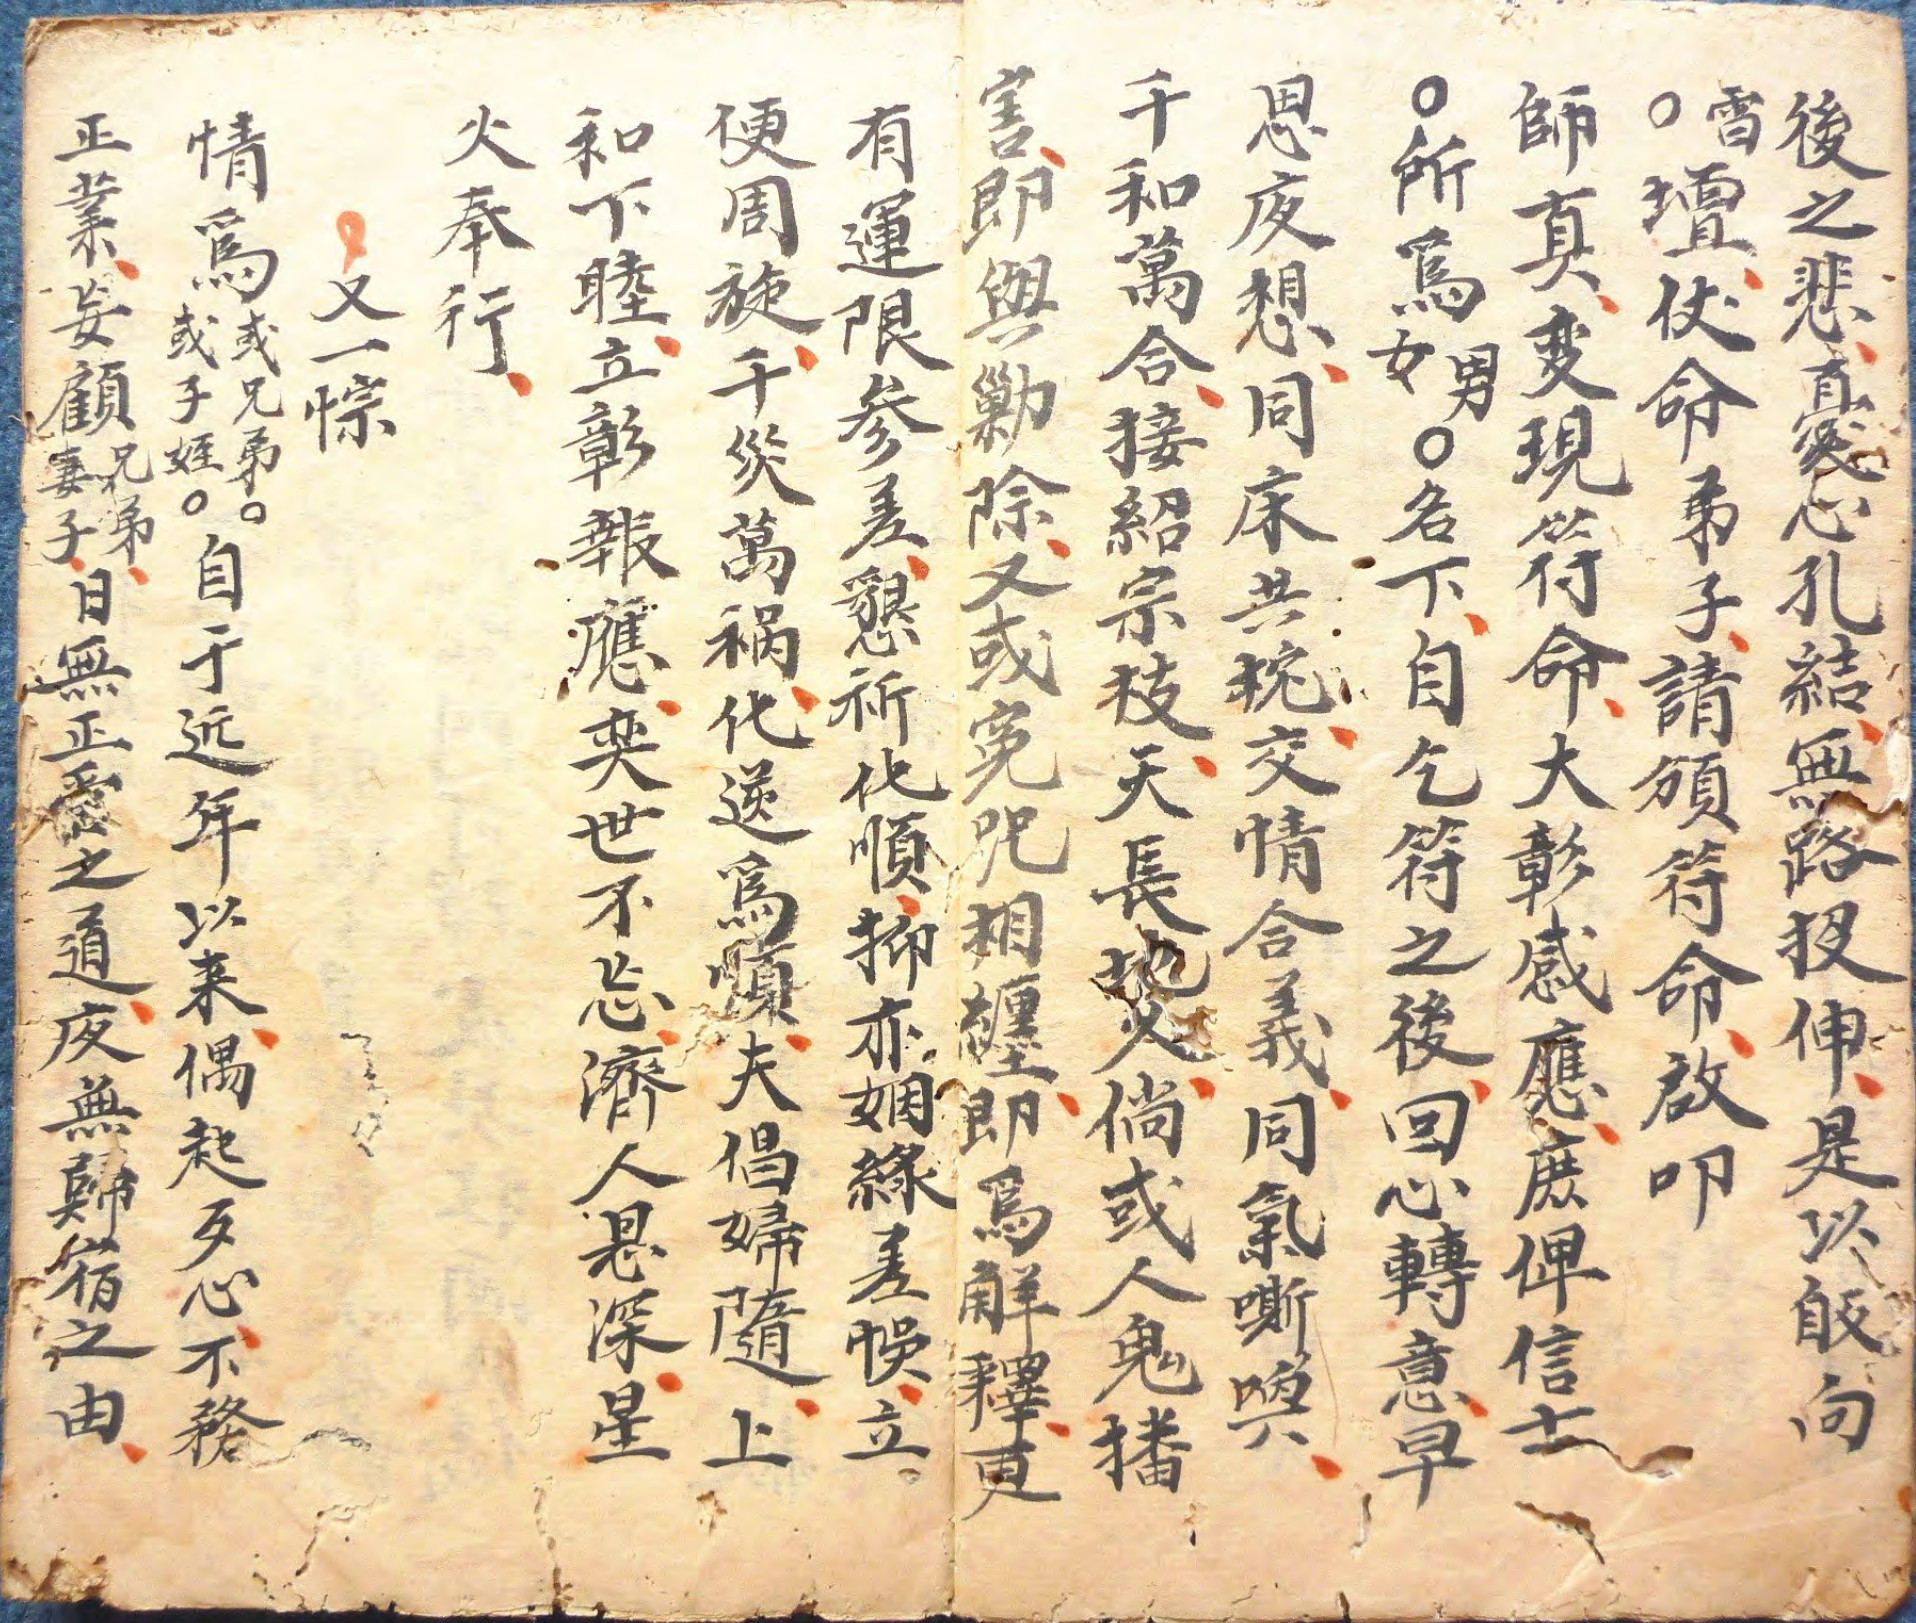 後之悲、直憂心孔結、無路投伸、是以皈向
雷○壇、伏命弟子、請頒符命、啟叩
師真、变現符命、大彰感應、庶俾信士
○所爲男女○名下、自乞符之後、回心轉意、早
思夜想、同床共枕、交情合義、同氣嘶喚、
千和萬合、接紹宗枝、天長地久、倘或人鬼播
害、即與勦除、又或冤咒相纏、即爲解釋、更
有運限參差、懇祈化順、抑亦姻緣差悞、立。
便周旋、千災萬禍、化逆爲順、夫倡婦隨、上
和下睦、立彰報應、奕世不忘、濟人恩深、星
火奉行、
又一悰
情爲或兄弟。或子姪。自于近年以来、偶起歹心、不務
正業、妄顧兄弟、妻子、日無正㕵之道、夜無歸宿之由、